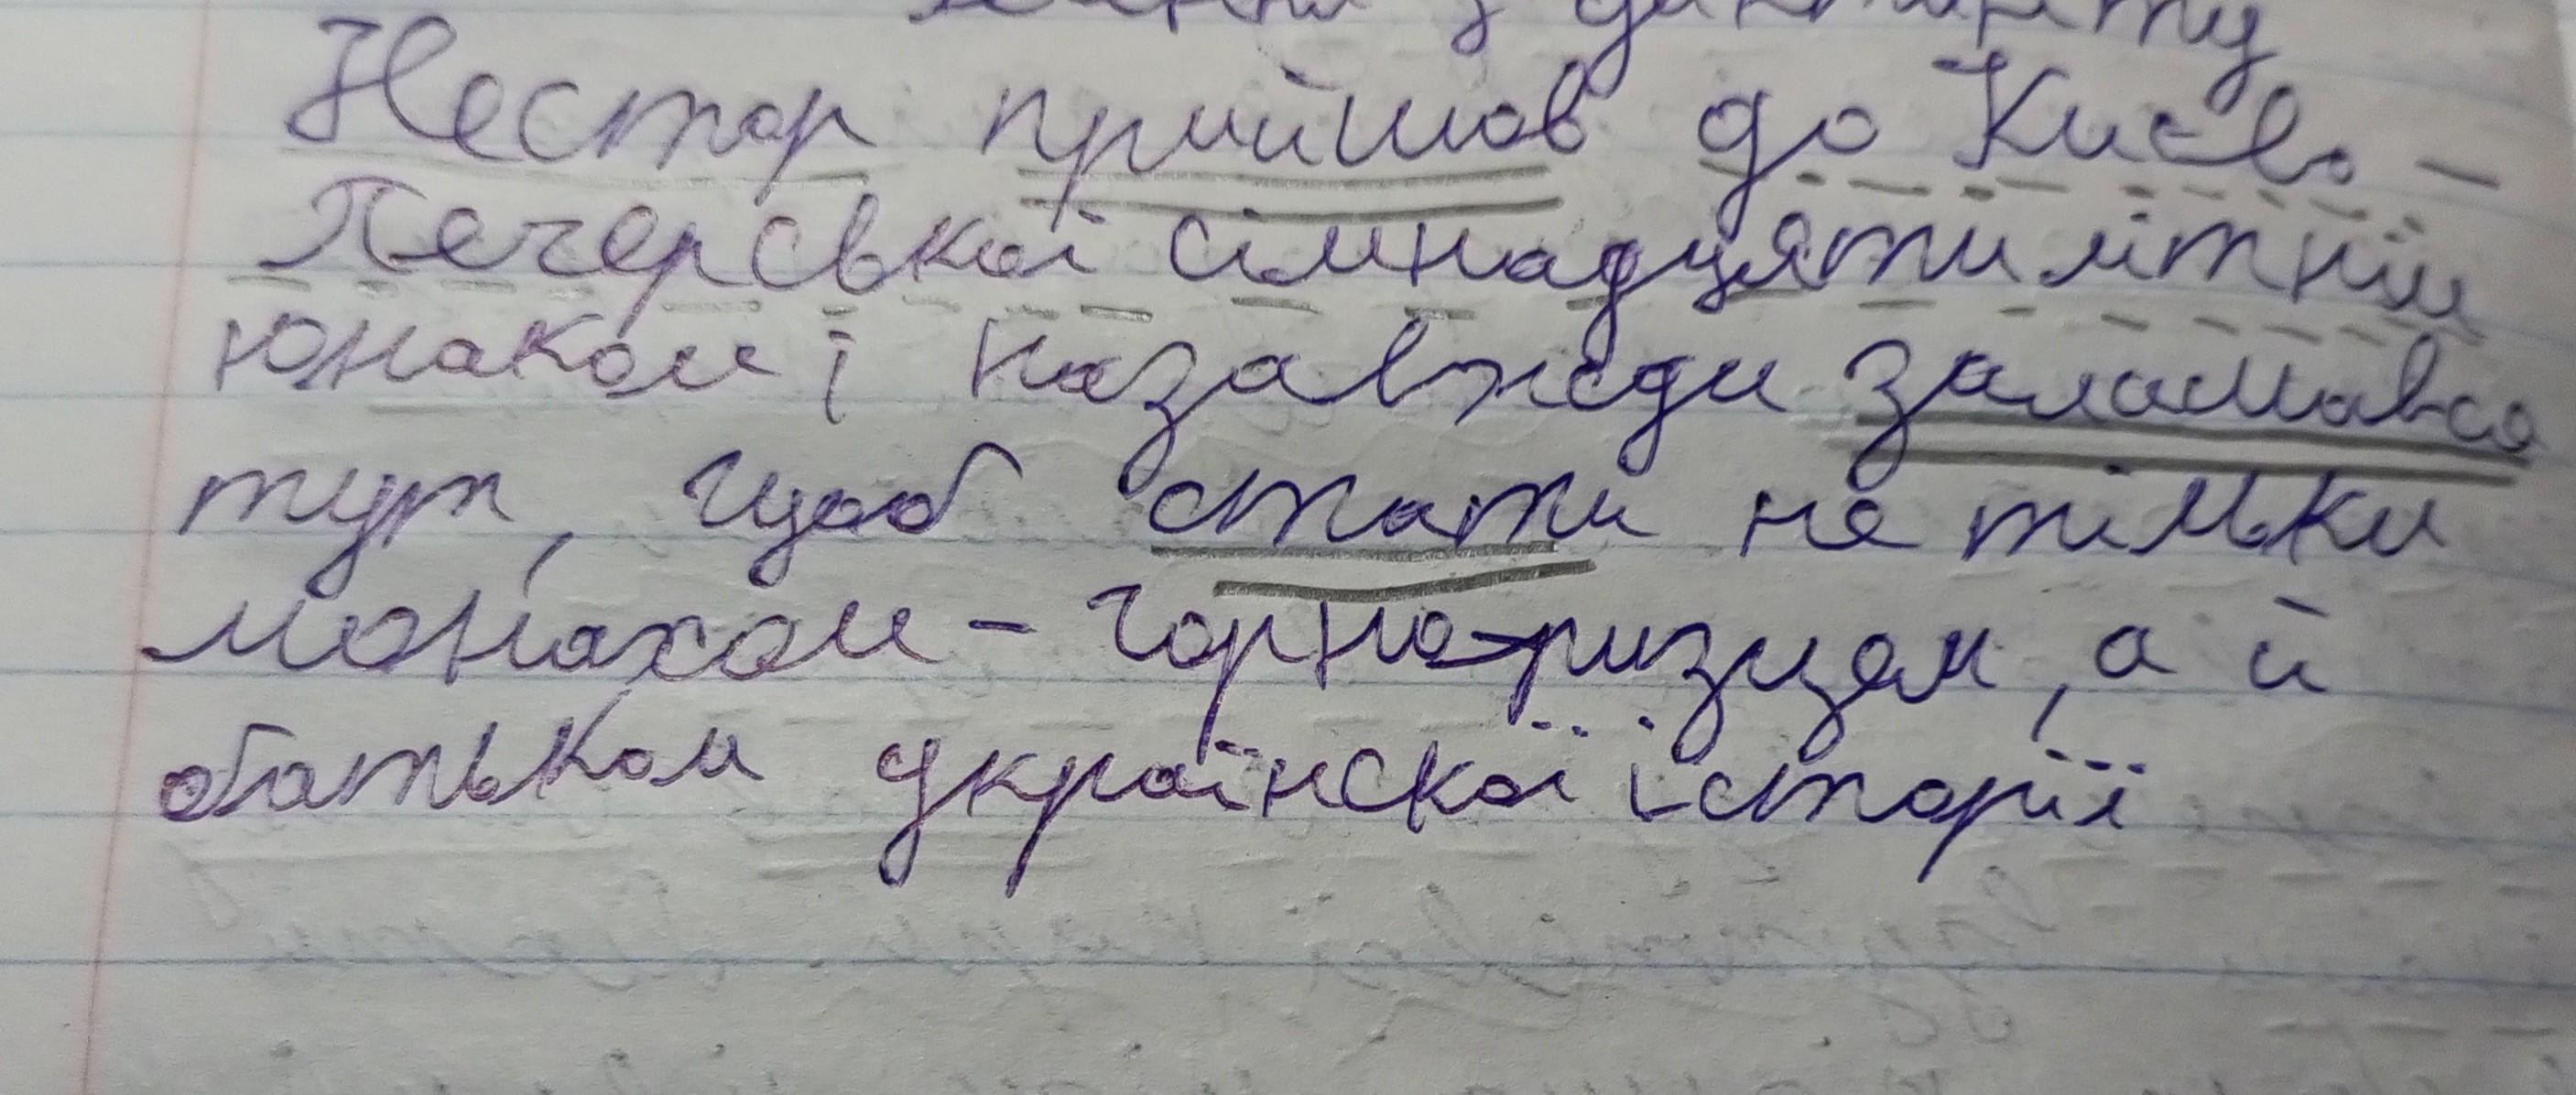 з диктанту
Нестор прийшов до Києво -
Печерської сімнадцятилітнім
юнаком і назавжди залашався
тут, щоб стати не тільки
монахом - чорноризцем, а й
батьком української історії